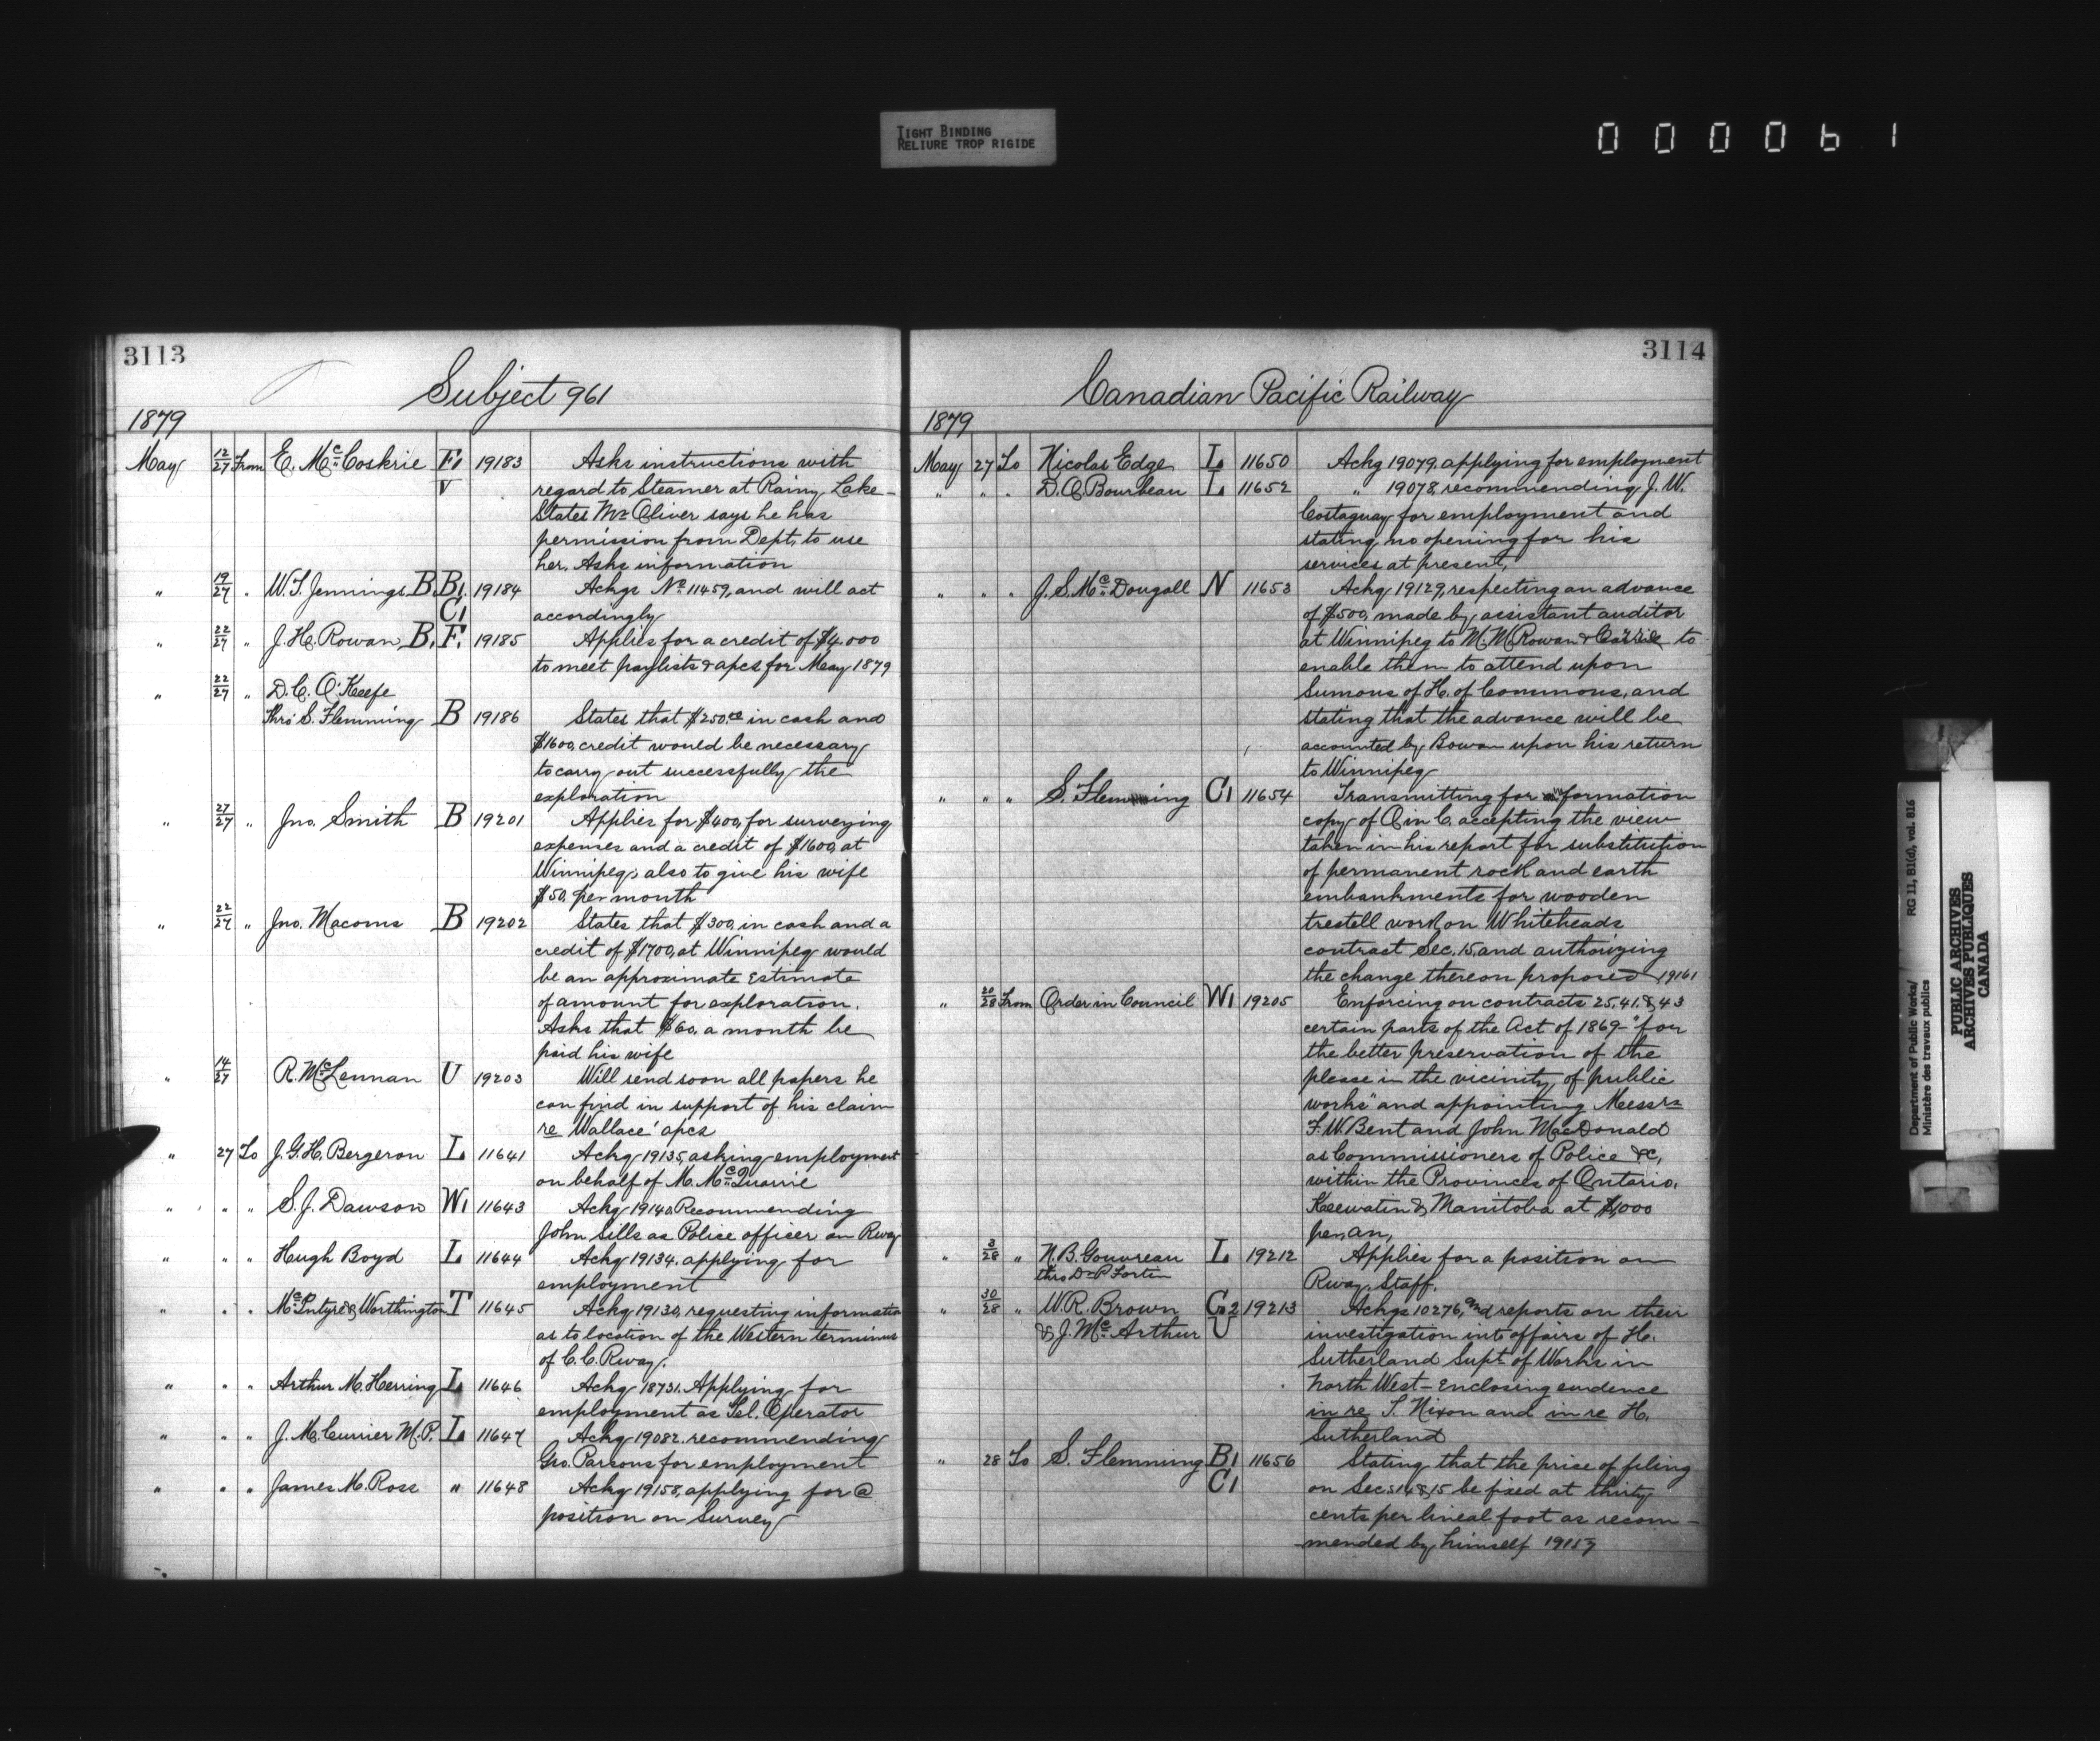 TIGHT BINDING
RELIURE TROP RIGIDE
000061
3113
Subject 961
1879
May 12/27 From E. McCoskrie F1 19183 Asks instructions with
V regard to Steamer at Rainy Lake -
States Mr Oliver says he has
permission from Dept, to use
her. Asks information
" 19/27 " W. T. Jennings B. B1. 19184 Ackgs No 11459, and will act
C1 accordingly
" 22/27 " J. H. Rowan B. F. 19185 Applies for a credit of $4.000
to meet paylists & apcs for May 1879
" 22/27 " D. C. O'Keefe
thro' S. Flemming B 19186 States that $250.00 in cash and
$1600, credit would be necessary
to carry out successfully the
exploration
" 27/27 " Jno. Smith B 19201 Applies for $400, for surveying
expenses and a credit of $1600, at
Winnipeg, also to give his wife
$50, per month
" 22/27 " Jno. Macoms B 19202 States that $300, in cash and a
credit of $1700, at Winnipeg would
be an approximate Estimate
of amount for exploration.
Asks that $60, a month be
paid his wife
" 14/27 R. McLennan U 19203 Will send soon all papers he
can find in support of his claim
re Wallace' apcs
" 27 To J. G. H. Bergeron L 11641 Ackg 19135, asking employment
on behalf of M. McQuarrie
" " " S. J. Dawson W1 11643 Ackg 19140, Recommending
John Sills as Police officer on Rway
" " " Hugh Boyd L 11644 Ackg 19134, applying for
employment
" " " McIntyre & Worthington T 11645 Ackg 19130, requesting information
as to location of the Western terminus
of C. C. Rway.
" " " Arthur M. Herring L 11646 Ackg 18731. Applying for
employment as Tel. Operator
" " " J. M. Currier M. P. L 11647 Ackg 19082. recommending
Geo. Parsons for employment
" " " James M. Ross " 11648 Ackg 19158, applying for @
position on Survey
3114
Canadian Pacific Railway
1879
May 27 To Nicolas Edge L 11650 Ackg 19079. applying for employment
" " " D. O. Bourbeau L 11652 " 19078, recommending J. W.
Costaguay for employment and
stating no opening for his
services at present,
" " " J. S. McDougall N 11653 Ackg 19129, respecting an advance
of $500, made by assistant auditor
at Winnipeg to M. M. Rowan & Carrie to
enable them to attend upon
Sumons of H. of Commons, and
stating that the advance will be
accounted by Rowan upon his return
to Winnipeg
" " " S. Flemming C1 11654 Transmitting for information
copy of O in C. accepting the view
taken in his report for substitution
of permanent rock and earth
embankments for wooden
trestell work on Whiteheads
contract Sec. 15, and authoizing
the change thereon proposed 19161
" 20/28 From Order in Council W1 19205 Enforcing on contracts 25, 41. & 43
certain parts of the Act of 1869 - "for
the better preservation of the
please in the vicinity, of public
works" and appointing Messrs
F. W. Bent and John MacDonald
as Commissioners of Police &c,
within the Provinces of Ontario,
Keewatin & Manitoba at $1,000
per, an,
" 3/28 " N. B. Gouvreau L 19212 Applies for a position on
thro Dr P Fortin Rway, Staff.
" 30/28 " W. R. Brown G2 19213 Ackgs 10276, and reports on their
& J. McArthur U investigation into affairs of H.
Sutherland Supt of Works in
North West - Enclosing evidence
in re T. Nixon and in re H.
Sutherland
" 28 To S. Flemming B1 11656 Stating that the price of piling
C1 on Secs 14 & 15 be fixed at thirty
cents per lineal foot as recom-
mended by himself 19157
Department of Public Works/ RG 11, B1(d), vol. 816
Ministère des travaux publics
PUBLIC ARCHIVES
ARCHIVES PUBLIQUES
CANADA